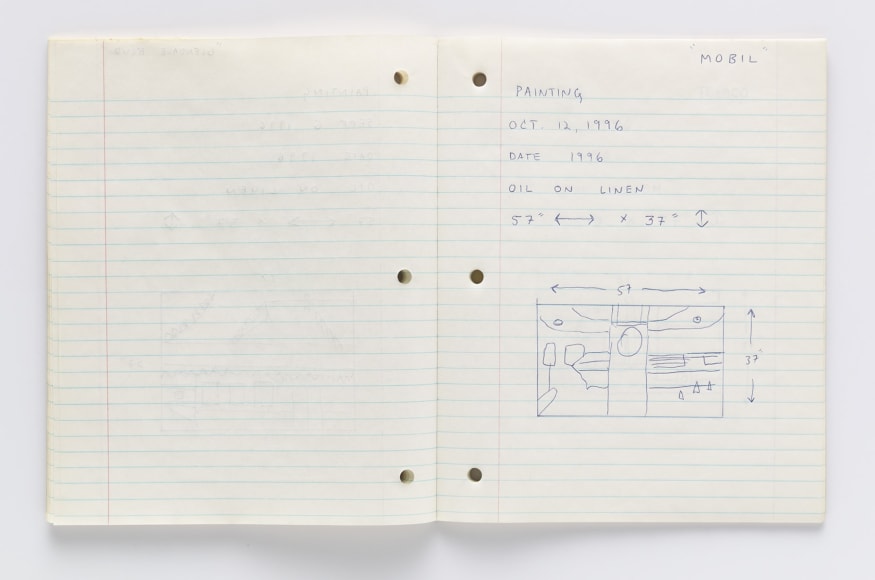 "MOBIL"
PAINTING
OCT. 12, 1996
DATE 1996
OIL ON LINEN
57" ↔ x 37" ↕
57
37"